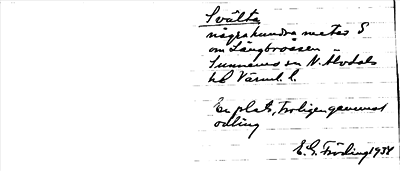 Svälta
några hundra meter S
om Långbrossen
Sunnemo sn N. Älvdals
hd Värml. l.
En plats, troligen gammal
odling
E. G. Fröding 1938